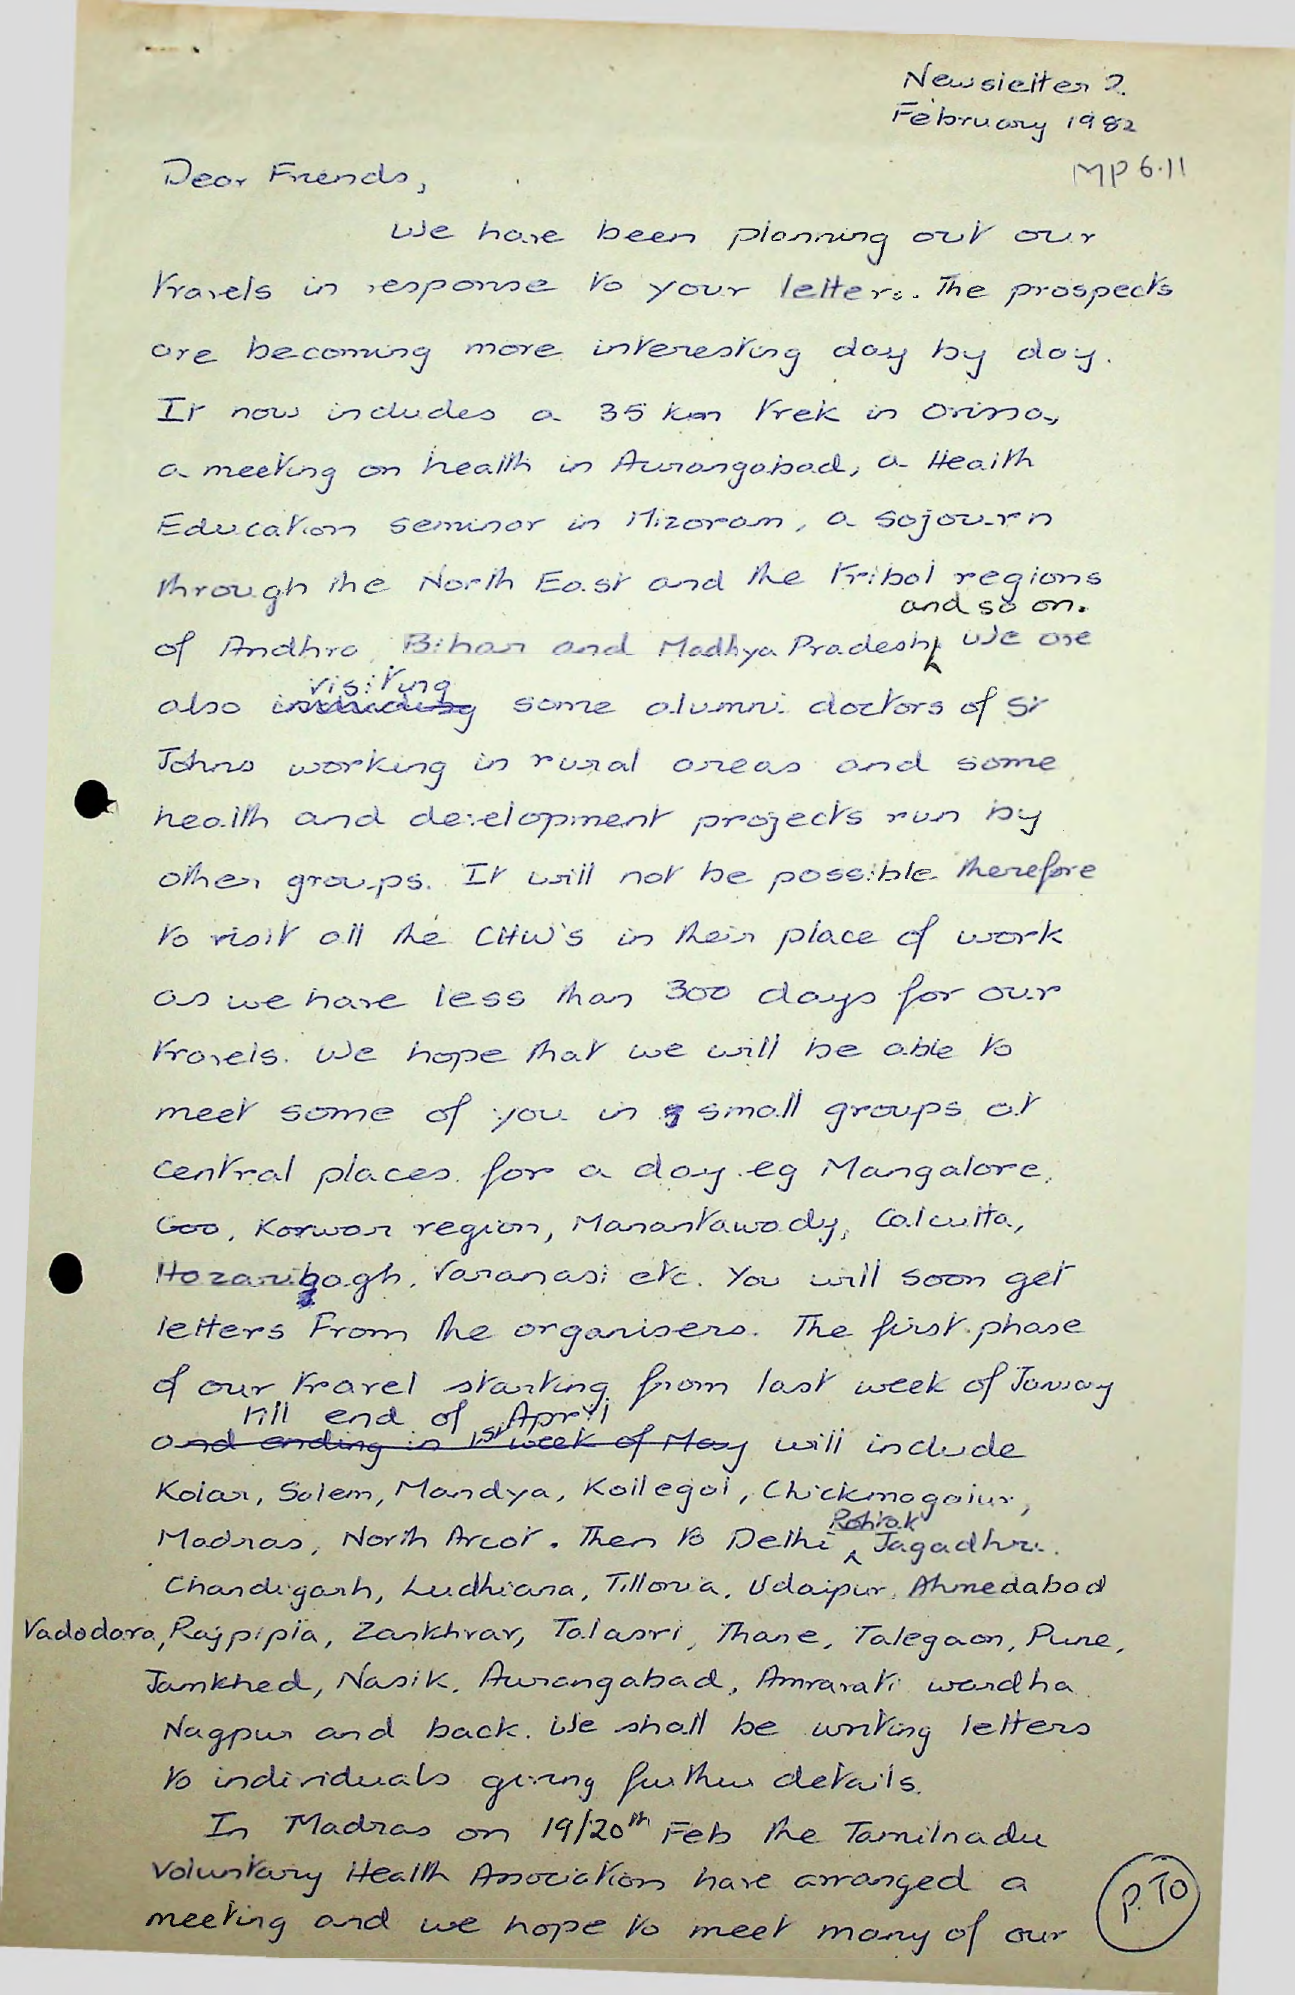 Newsletter 2.
February 1982
MP 6.11
Dear Friends,
We have been planning out our
travels in response to your letters. The prospects
are becoming more interesting day by day.
It now includes a 35 km trek in Orissa,
a meeting on health in Aurangabad, a Health
Education seminar in Mizoram, a sojourn
through the North East and the tribal regions
of Andhra, Bihar and Madhya Pradesh and so on. We are
also including visiting some alumni doctors of St
Johns working in rural areas and some
health and development projects run by
other groups. It will not be possible therefore
to visit all the CHW's in their place of work
as we have less than 300 days for our
travels. We hope that we will be able to
meet some of you in small groups at
central places for a day eg Mangalore,
Goa, Karwar region, Manantawady, Calcutta,
Hazaribagh, Varanasi etc. You will soon get
letters from the organisers. The first phase
of our travel starting from last week of January
till end of April
and ending in 1st week of May will include
Kolar, Salem, Mandya, Kollegal, Chickmagalur,
Madras, North Arcot. Then to Delhi Rohtak Jagadhri.
Chandigarh, Ludhiana, Tillonia, Udaipur, Ahmedabad
Vadodara, Rajpipla, Zankhvav, Talasri, Thane, Talegaon, Pune,
Jamkhed, Nasik, Aurangabad, Amravati wardha
Nagpur and back. We shall be writing letters
to individuals giving further details.
In Madras on 19/20th Feb the Tamilnadu
Voluntary Health Association have arranged a
meeting and we hope to meet many of our
P.TO